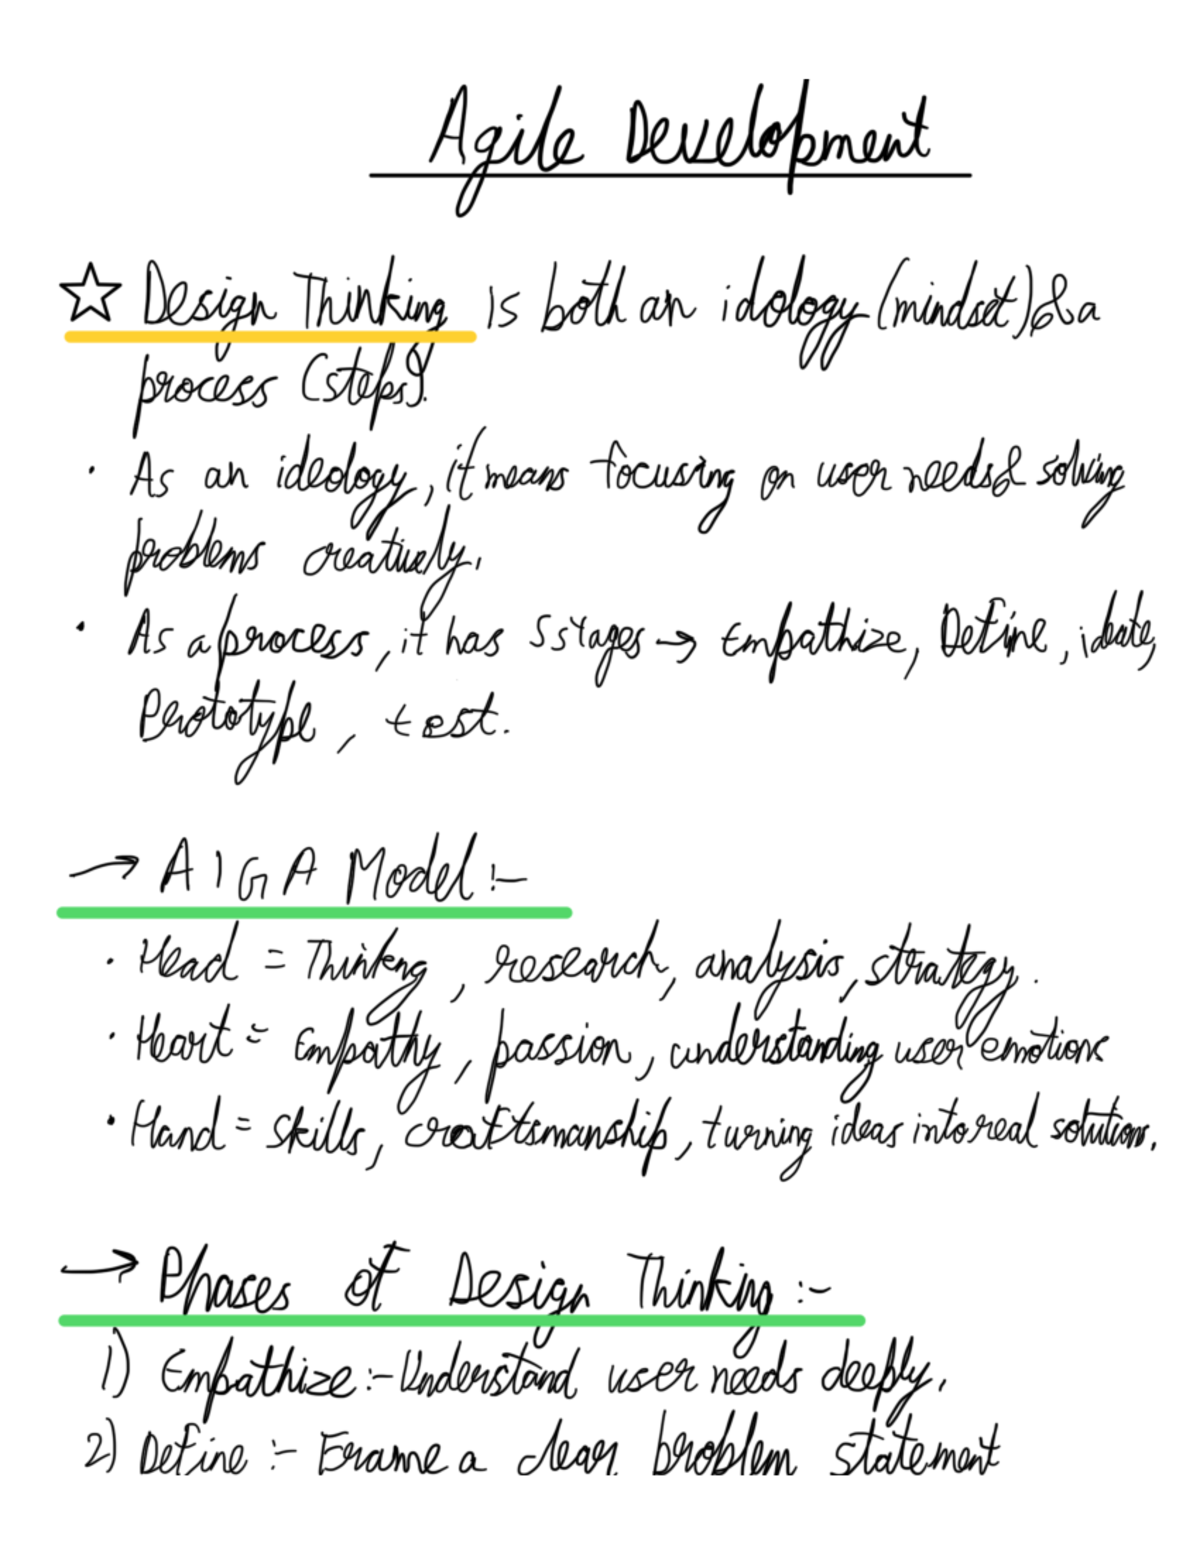 Agile Development
☆ Design Thinking is both an idology (mindset) & a
process (steps).
• As an ideology, it means focusing on user needs & solving
problems creatively.
• As a process, it has 5 stages → Empathize, Define, ideate,
Prototype, test.
→ AIGA Model :-
• Head = Thinking, research, analysis, strategy.
• Heart = Empathy, passion, understanding user emotions
• Hand = skills, craftsmanship, turning ideas into real solutions.
→ Phases of Design Thinking :-
1) Empathize :- Understand user needs deeply.
2) Define :- Frame a clear problem statement